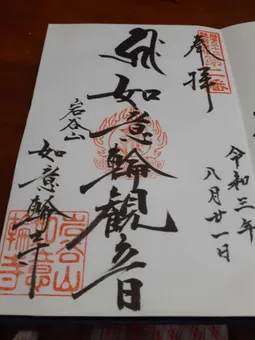 奉拝
令和三年
八月廿一日
飛如意輪観音
岩谷山
如意輪寺
岩谷山
如意
輪寺